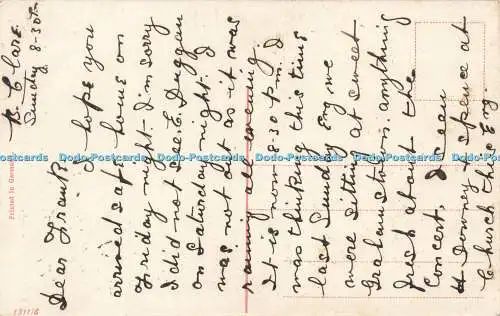 K. Clare.
Sunday 8-30 Pm
Dear Frank
I hope you
arrived safe home on
Friday night. I'm sorry
I did not see E. Duggan
on Saturday night. I
was not out as it was
raining all evening
It is now 8.30 p.m. I
was thinking this time
last Sunday Eng we
were sitting at sweet
Graham's trees. anything
fresh about the
Concert, I mean
H Downey & Spence at
Church this Eng.
Printed in Germany
131116
Dodo-Postcards Dodo-Postcards Dodo-Postcards Dodo-Postcards Dodo-Postcards